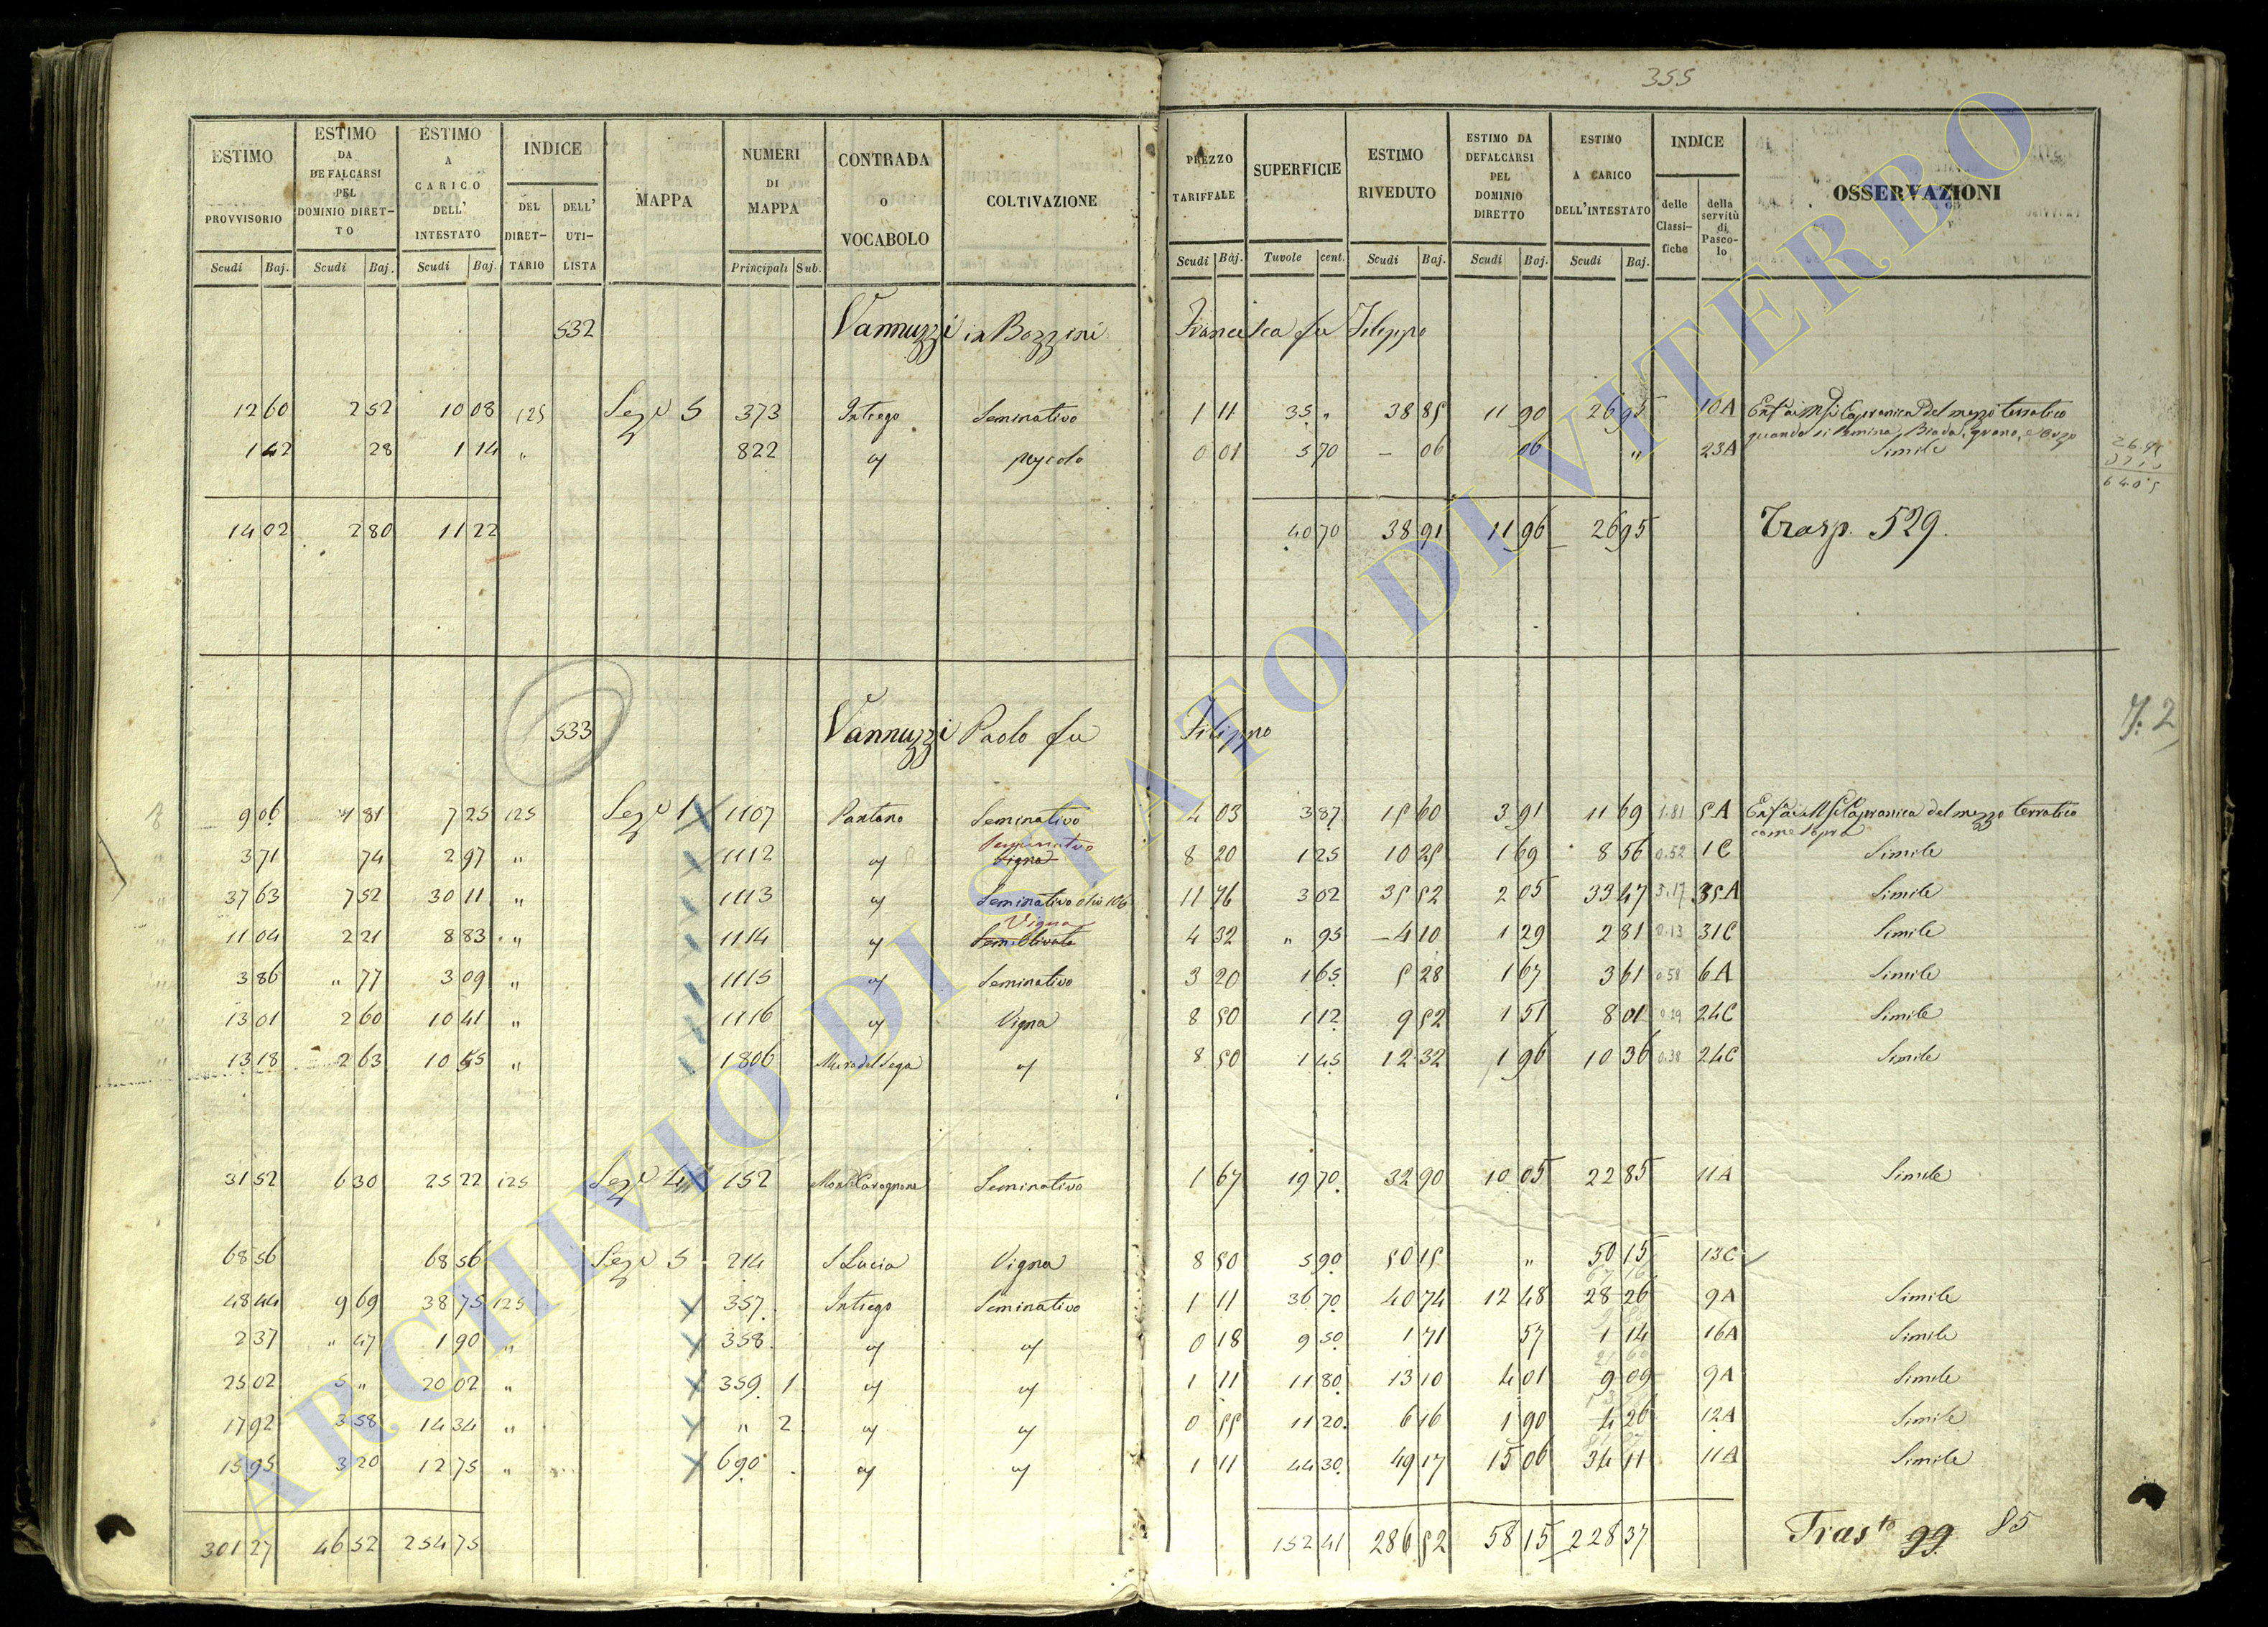 355
ESTIMO PROVVISORIO Scudi Baj.
ESTIMO DA DEFALCARSI PEL DOMINIO DIRETTO Scudi Baj.
ESTIMO A CARICO DELL' INTESTATO Scudi Baj.
INDICE DEL DIRETTARIO DELL' UTILISTA
MAPPA
NUMERI DI MAPPA Principali Sub.
CONTRADA O VOCABOLO
COLTIVAZIONE
PREZZO TARIFFALE Scudi Baj.
SUPERFICIE Tavole cent.
ESTIMO RIVEDUTO Scudi Baj.
ESTIMO DA DEFALCARSI PEL DOMINIO DIRETTO Scudi Baj.
ESTIMO A CARICO DELL'INTESTATO Scudi Baj.
INDICE delle Classifiche della servitù di Pascolo
OSSERVAZIONI
532 Vannuzzi in Bozzini Francesca fu Filippo
12 60 2 52 10 08 125 Sezne 5 373 Intrego Seminativo 1 11 35 " 38 85 11 90 26 95 10A Capranica del mezzo terratico
quando si semina, Biada, grano, e orzo
1 42 28 1 14 " 822 " 0 01 5 70 - 06 06 " 23A Simile
14 02 2 80 11 22 40 70 38 91 11 96 26 95 Trasp. 529.
533 Vannuzzi Paolo fu Filippo
9 06 1 81 7 25 125 Sezne 1 1107 Pantano Seminativo 4 03 3 87 15 60 3 91 11 69 1.81 5A Capranica del mezzo terratico
come sopra
Seminativo
3 71 74 2 97 " 1112 " Vigna 8 20 1 25 10 25 1 69 8 56 0.52 1C Simile
37 63 7 52 30 11 " 1113 " Seminativo 11 76 3 02 35 52 2 05 33 47 3.17 35A Simile
Vigna
11 04 2 21 8 83 " 1114 " Sem. Olivato 4 32 " 95 - 4 10 1 29 2 81 0.13 31C Simile
3 86 " 77 3 09 " 1115 " Seminativo 3 20 1 65 5 28 1 67 3 61 0.58 6A Simile
13 01 2 60 10 41 " 1116 " Vigna 8 50 1 12 9 52 1 51 8 01 0.29 24C Simile
13 18 2 63 10 55 " 1806 " 8 50 1 45 12 32 1 96 10 36 0.38 24C Simile
31 52 6 30 25 22 125 Sezne 4 152 Seminativo 1 67 19 70 32 90 10 05 22 85 11A Simile
68 56 68 56 Sezne 5 214 S Lucia Vigna 8 50 5 90 50 15 " 50 15 13C
48 44 9 69 38 75 125 357 Intrego Seminativo 1 11 36 70 40 74 12 48 28 26 9A Simile
2 37 " 47 1 90 " 358 " " 0 18 9 50 1 71 57 1 14 16A Simile
25 02 5 " 20 02 " 359 1 " " 1 11 11 80 13 10 4 01 9 09 9A Simile
17 92 3 58 14 34 " " 2 " " 0 55 11 20 6 16 1 90 4 26 12A Simile
15 95 3 20 12 75 " 690 " " 1 11 44 30 49 17 15 06 34 11 11A Simile
301 27 46 52 254 75 152 41 286 52 58 15 228 37 Trasto 99 85
ARCHIVIO DI STATO DI VITERBO